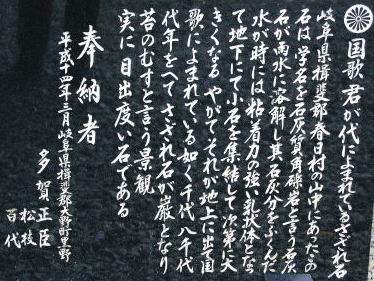 国歌君が代によまれているさざれ石
岐阜県揖斐郡春日村の山中にあったこの
石は学名を石灰質角礫岩と言う石灰
石が雨水に溶解し其石灰分をふくんだ
水が時には粘着力の強い乳状体となっ
て地下にて小石を集結して次第に大
きくなるやがてそれが地上に出て国
歌によまれている如く千代八千
代年をへてさざれ石が巌となり
苔のむすと言う景観
実に目出度い石である
奉納者
平成十四年三月岐阜県揖斐郡大野町里野
多賀正臣
松枝
百代